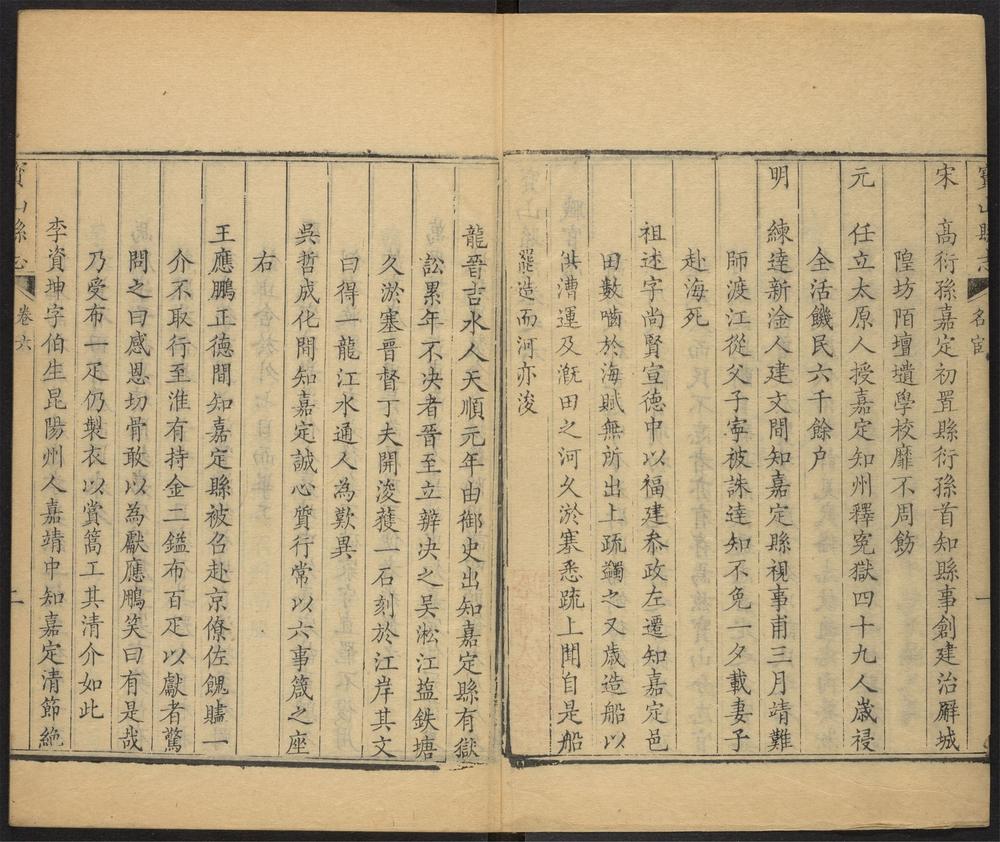 寶山縣志 名宦 一
宋 高衍孫嘉定初置縣衍孫首知縣事創建治廨城
隍坊陌壇壝學校靡不周飭
元 任立太原人授嘉定知州釋寃獄四十九人歲祲
全活饑民六千餘户
明 練達新淦人建文間知嘉定縣視事甫三月靖難
師渡江從父子寧被誅達知不免一夕載妻子
赴海死
祖述字尚賢宣德中以福建叅政左遷知嘉定邑
田數嚙於海賦無所出上疏蠲之又歲造船以
供漕運及漑田之河久淤塞悉疏上聞自是船
罷造而河亦浚
龍晉吉水人天順元年由御史出知嘉定縣有獄
訟累年不決者晉至立辨決之吴淞江塩鉄塘
久淤塞晉督丁夫開浚𫉬一石刻於江岸其文
曰得一龍江水通人為歎異
吳哲成化間知嘉定誠心質行常以六事箴之座
右
王應鵬正德間知嘉定縣被召赴京僚佐餽贐一
介不取行至淮有持金二鎰布百疋以獻者驚
問之曰感恩切骨敢以為獻應鵬笑曰有是哉
乃受布一疋仍製衣以賞篙工其清介如此
李資坤字伯生昆陽州人嘉靖中知嘉定清節絶
寶山縣志 卷六 二